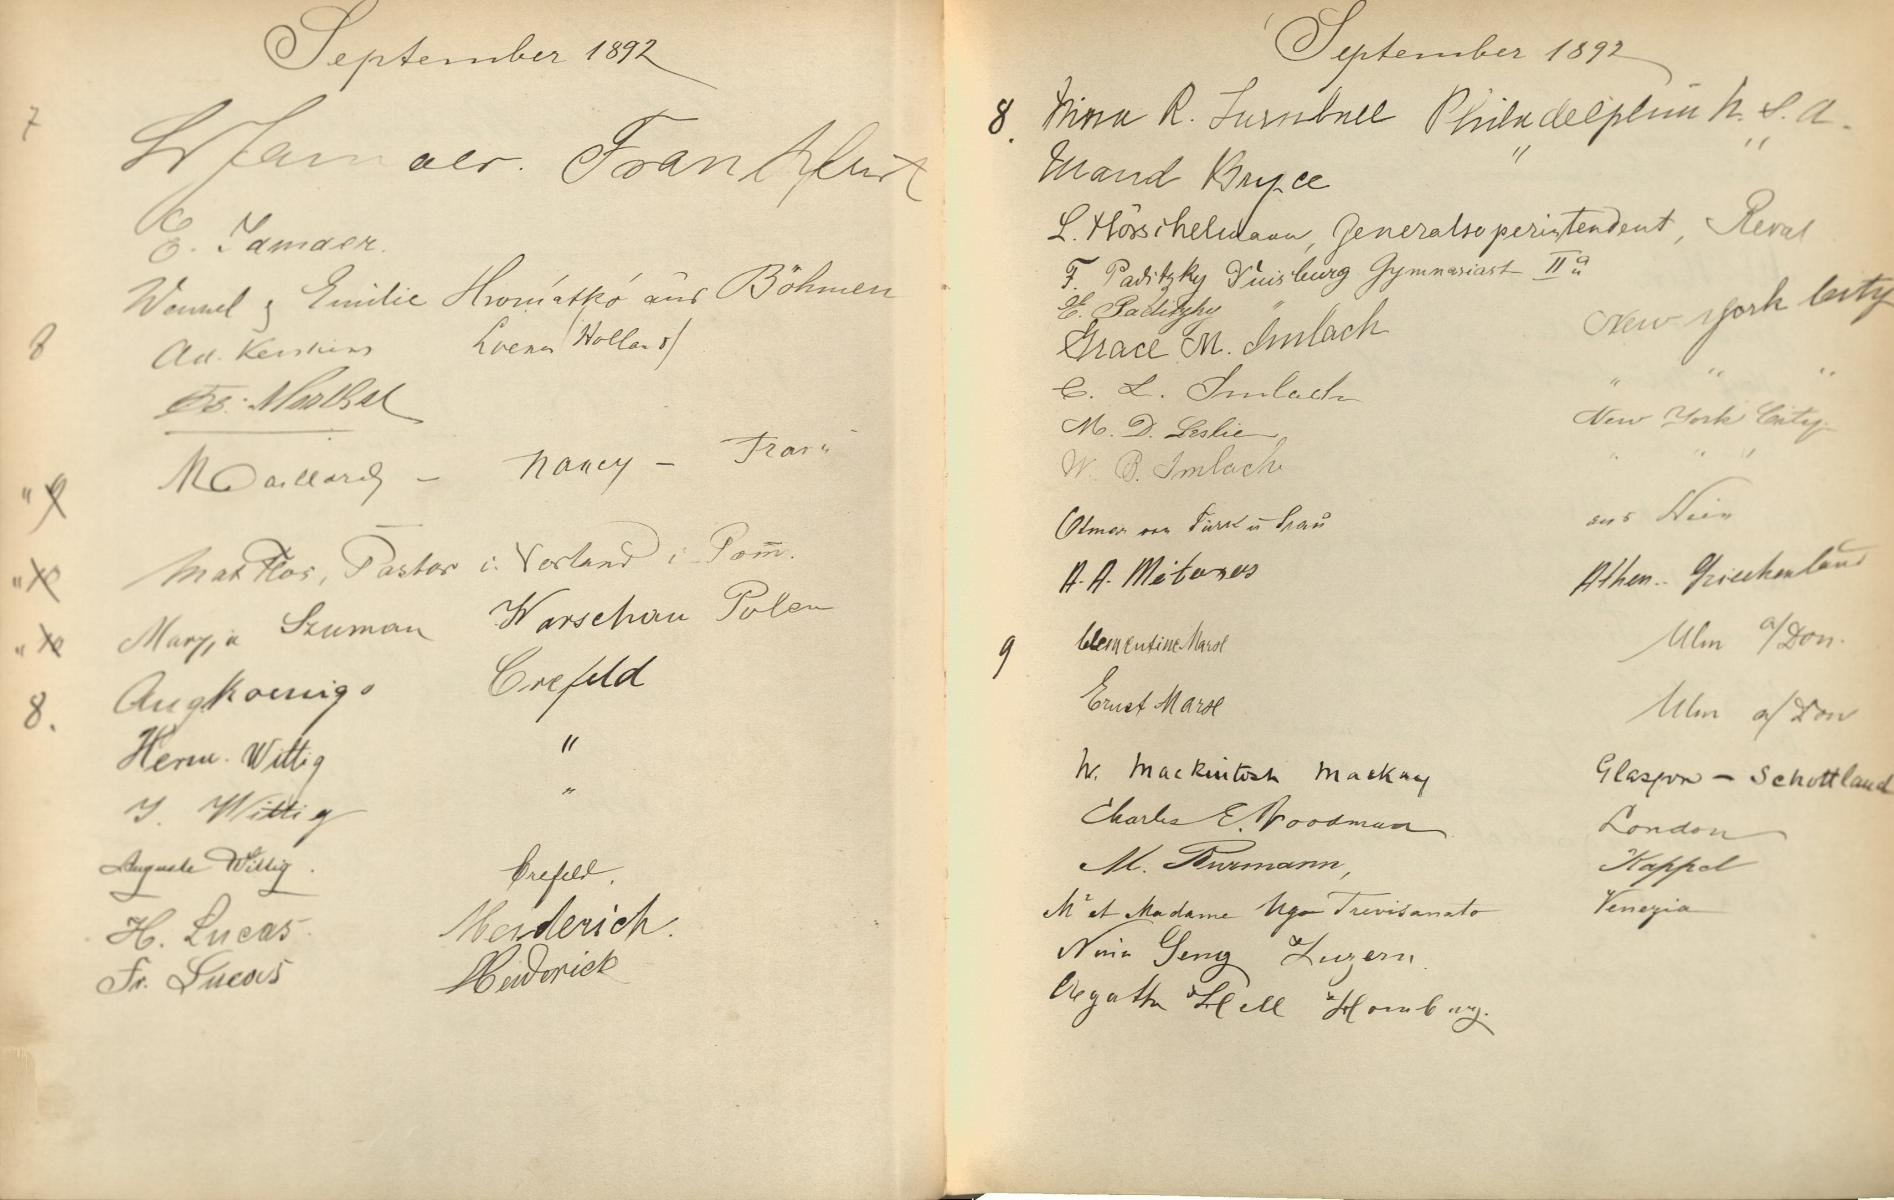 September 1892
7
W Jamaer. Frankfurt
E. Jamaer.
Wenzel & Emilie Hromatko aus Böhmen
8 Ad. Kerstens Holland
Maillard – Nancy –
Pastor i. Vorland i. Pom̄.
Maryja Szuman Warschau Polen
8. Aug Koenigs Crefeld
Herm. Wittig "
J. Wittig "
Auguste Wittig. Crefeld.
H. Lucas Meiderich.
Fr. Lucas Meiderich
September 1892
8. Nina R. Turnbull Philadelphia U. S. A.
Maud Bryce " "
L. Hörschelmann, Generalsuperintendent, Reval
F. Paditzky Duisburg Gymnasiast II a
E. Paditzky "
Grace M. Imlach New York City
C. L. Imlach " " "
M. D. Leslie New York City.
W. B. Imlach " " "
von Türk u Frau aus Wien
A. A. Athen.. Griechenland
9 Clementine Ulm a/Don.
Ernst Ulm a/Don
W. Mackintosh Mackay Glasgow – Schottland
Charles E. Woodman London
M. Kappel
Mr et Madame Ugo Trevisanato Venezia
Nina Geng Luzern
Agatha Hell Homburg.